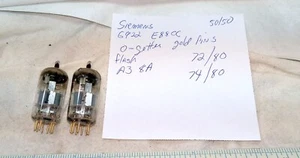 Siemens 50/50
G922 E88CC
O-getter gold pins
flash 72/80
A3 8A 74/80